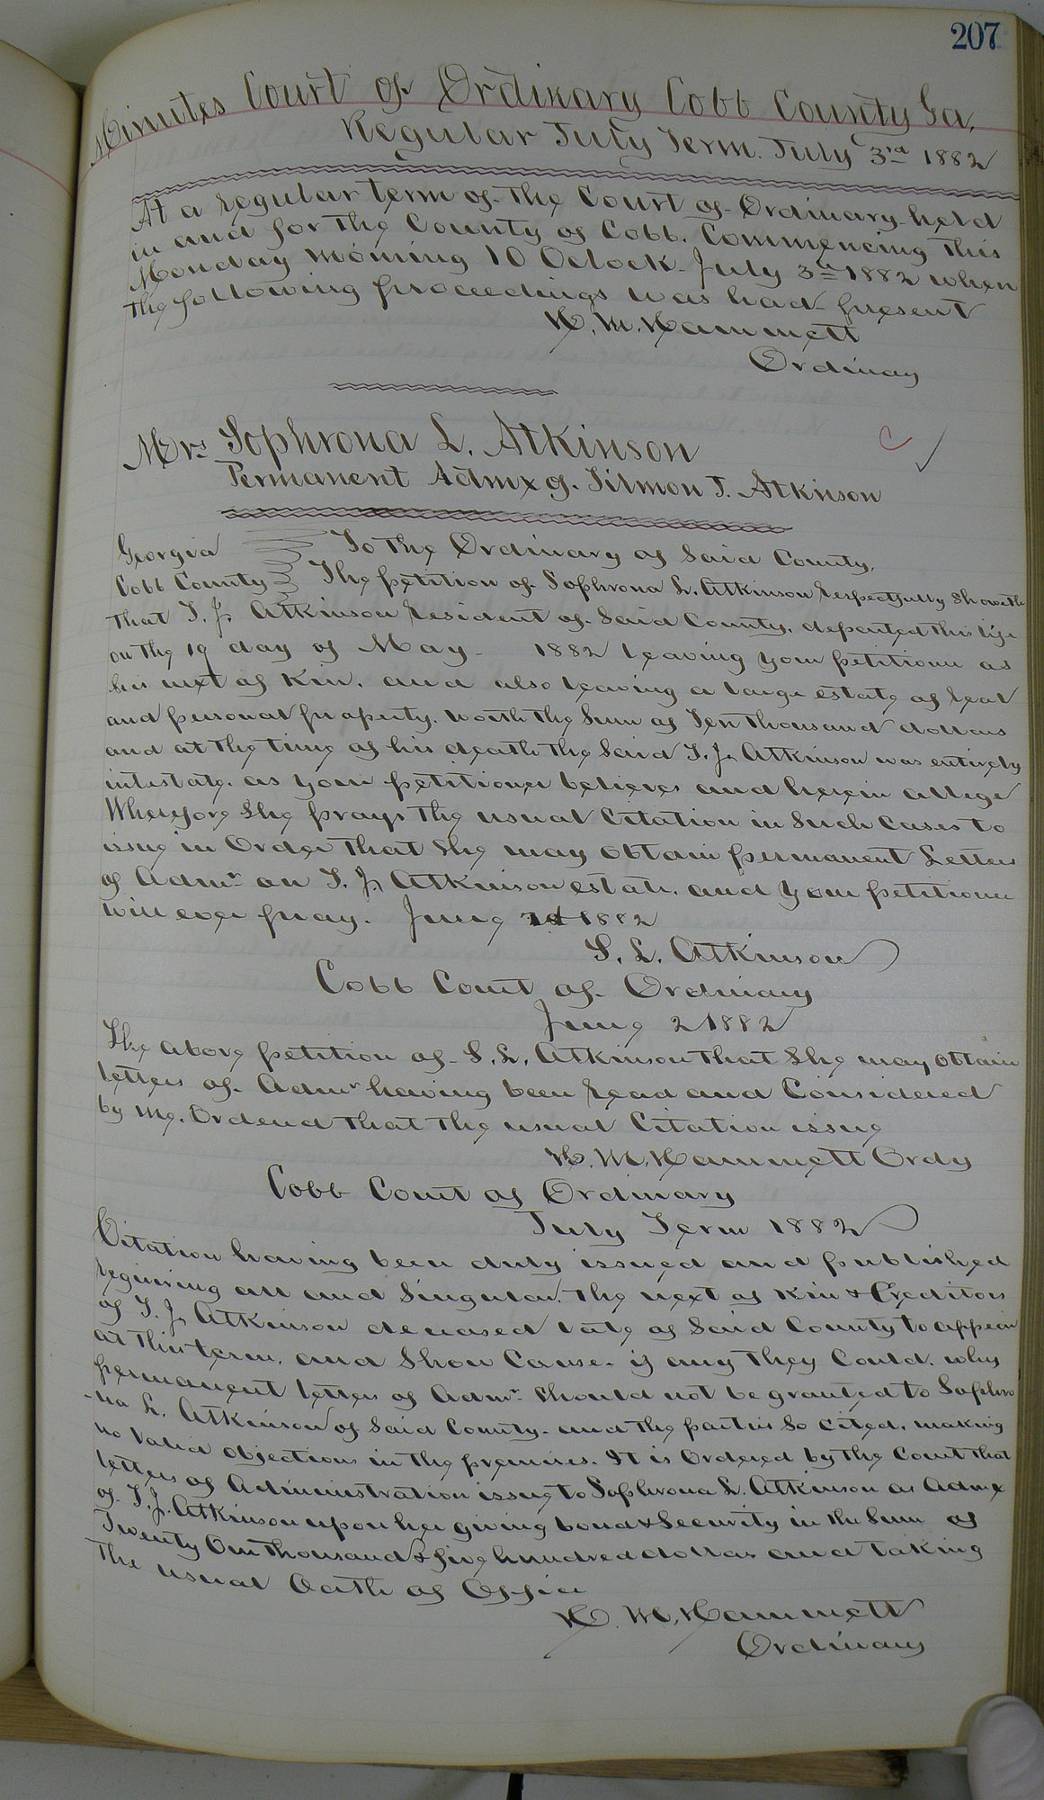 207
Minutes Court of Ordinary Cobb County Ga,
Regular July Term. July 3rd 1882
At a regular term of the Court of Ordinary held
in and for the County of Cobb. Commencing this
Monday morning 10 Oclock July 3rd 1882 when
the following proceedings was had present
H. M. Hammett
Ordinary
Mrs Sophrona L. Atkinson
Permanent Admx of Tilmon J. Atkinson
Georgia To the Ordinary of Said County.
Cobb County The petition of Sophrona L. Atkinson Respectfully Showeth
that T. J. Atkinson Resident of Said County, departed this life
on the 19 day of May 1882 leaving your petitioner as
his next of Kin. and also leaving a large estate of real
and personal property. worth the Sum of Ten thousand dollars
and at the time of his death the Said T. J. Atkinson was entirely
intestate. as your petitioner believes and herein allege
Wherefore She prays the usual Citation in Such Cases to
issue in Order that She may obtain permanent Letters
of Admr on T. J. Atkinson estate. and your petitioner
will ever pray. June 1882
S. L. Atkinson
Cobb Court of Ordinary
June 2 1882
The above petition of S. L. Atkinson that She may obtain
letters of Admr having been read and Considered
by me. Ordered that the usual Citation issue
H. M. Hammett Ordy
Cobb Court of Ordinary
July Term 1882
Citation having been duly issued and published
requiring all and Singular. the next of Kin & Creditors
of T. J. Atkinson deceased late of Said County to appear
at this term. and Show Cause. if any they Could. why
permanent letters of Admr should not be granted to Sophro
-na L. Atkinson of Said County. and the parties So cited. making
no Valid objections in the premises. It is Ordered by the Court that
letters of Administration issue to Sophrona L. Atkinson as Admx
of T. J. Atkinson upon her giving bond & Security in the Sum of
Twenty One thousand & five hundred dollars and taking
the usual Oath of Office
H. M. Hammett
Ordinary